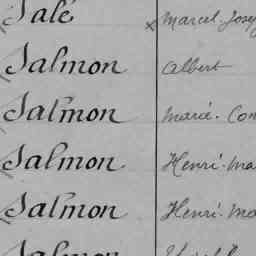 Salé Marcel. Jose
Salmon Albert
Salmon Marie. Con
Salmon Henri. Ma
Salmon Henri. Ma
Salmon